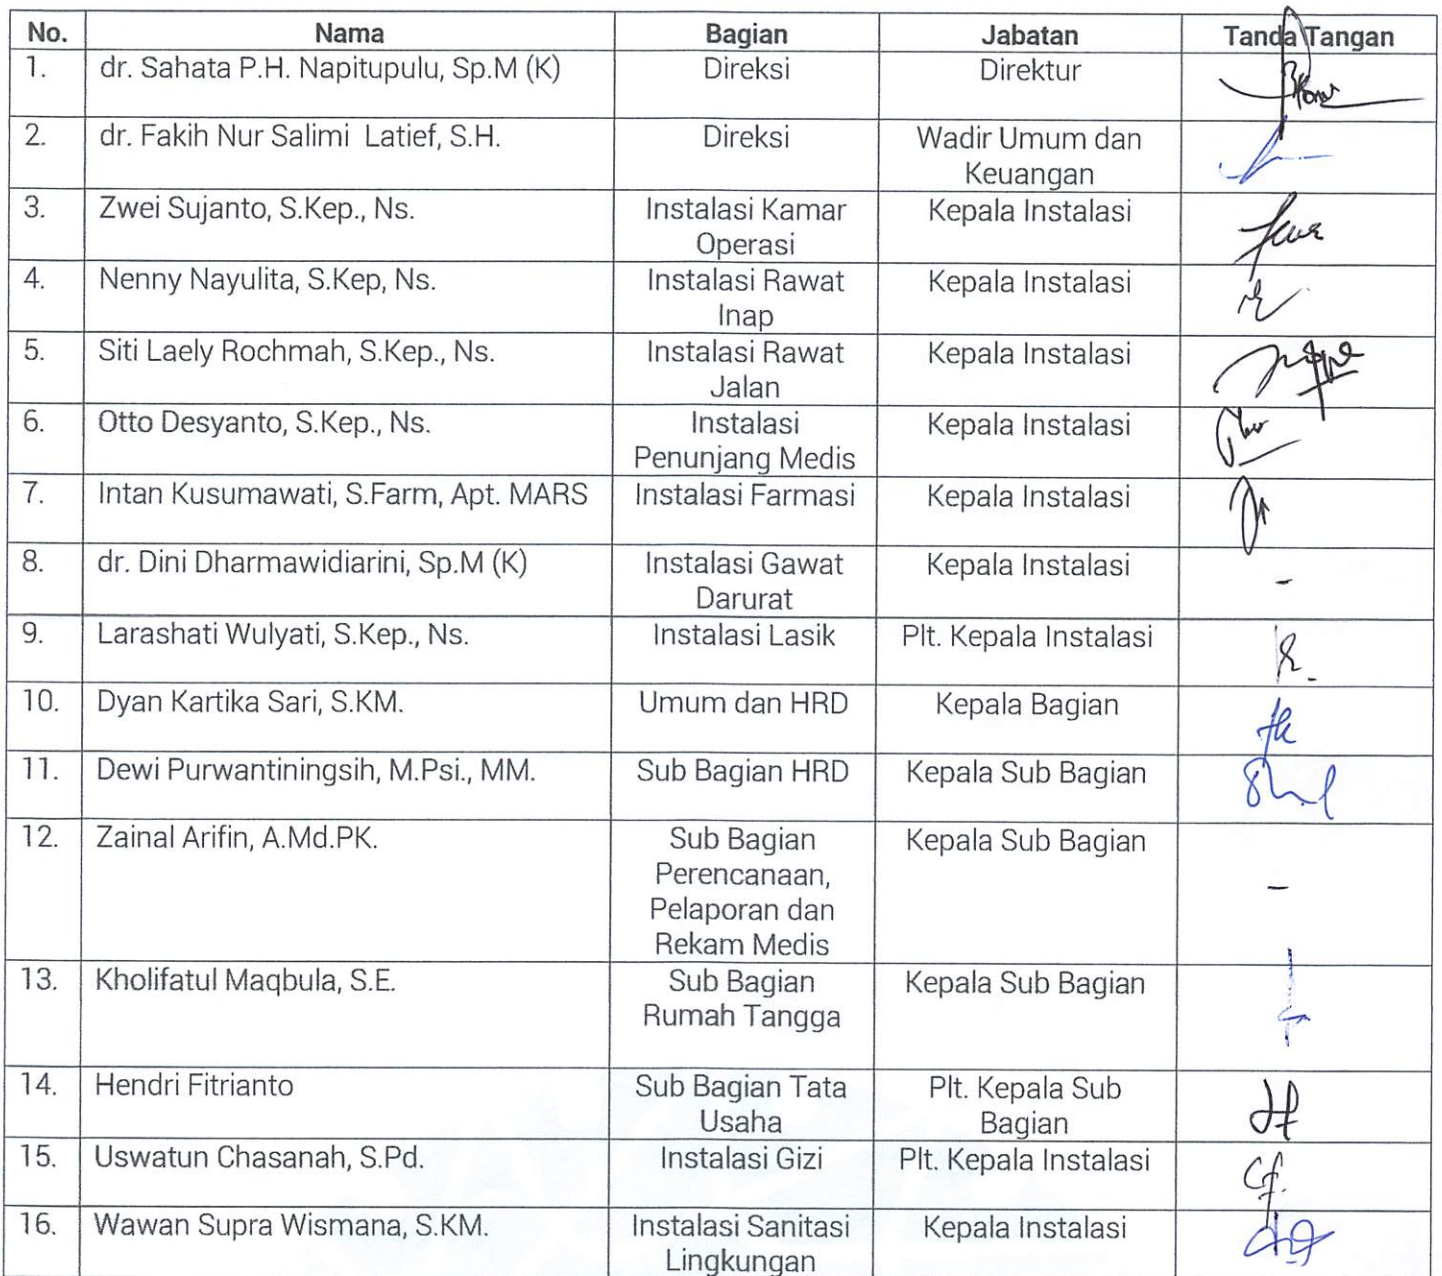 No. Nama Bagian Jabatan Tanda Tangan
1. dr. Sahata P.H. Napitupulu, Sp.M (K) Direksi Direktur
2. dr. Fakih Nur Salimi Latief, S.H. Direksi Wadir Umum dan
Keuangan
3. Zwei Sujanto, S.Kep., Ns. Instalasi Kamar Kepala Instalasi
Operasi
4. Nenny Nayulita, S.Kep, Ns. Instalasi Rawat Kepala Instalasi
Inap
5. Siti Laely Rochmah, S.Kep., Ns. Instalasi Rawat Kepala Instalasi
Jalan
6. Otto Desyanto, S.Kep., Ns. Instalasi Kepala Instalasi
Penunjang Medis
7. Intan Kusumawati, S.Farm, Apt. MARS Instalasi Farmasi Kepala Instalasi
8. dr. Dini Dharmawidiarini, Sp.M (K) Instalasi Gawat Kepala Instalasi -
Darurat
9. Larashati Wulyati, S.Kep., Ns. Instalasi Lasik Plt. Kepala Instalasi
10. Dyan Kartika Sari, S.KM. Umum dan HRD Kepala Bagian
11. Dewi Purwantiningsih, M.Psi., MM. Sub Bagian HRD Kepala Sub Bagian
12. Zainal Arifin, A.Md.PK. Sub Bagian Kepala Sub Bagian
Perencanaan, -
Pelaporan dan
Rekam Medis
13. Kholifatul Maqbula, S.E. Sub Bagian Kepala Sub Bagian
Rumah Tangga
14. Hendri Fitrianto Sub Bagian Tata Plt. Kepala Sub
Usaha Bagian
15. Uswatun Chasanah, S.Pd. Instalasi Gizi Plt. Kepala Instalasi
16. Wawan Supra Wismana, S.KM. Instalasi Sanitasi Kepala Instalasi
Lingkungan